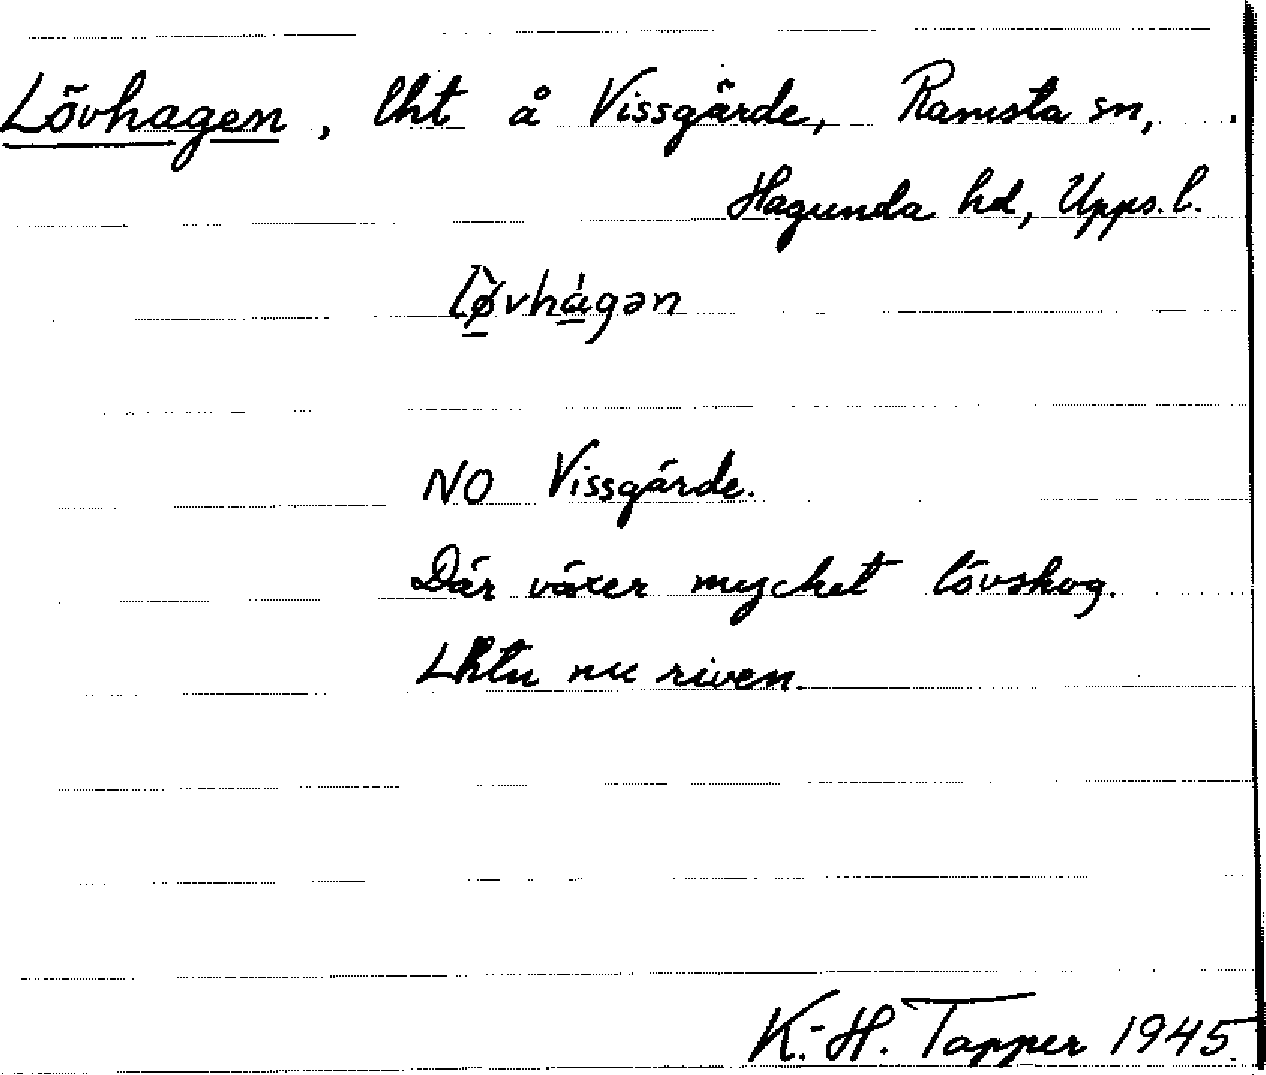 Lövhagen, lht å Vissgärde, Ramsta sn,
Hagunda hd, Upps. l.
lø̀vhágən
NO Vissgärde.
Där växer mycket lövskog.
Lhtn nu riven.
K.-H. Tapper 1945.